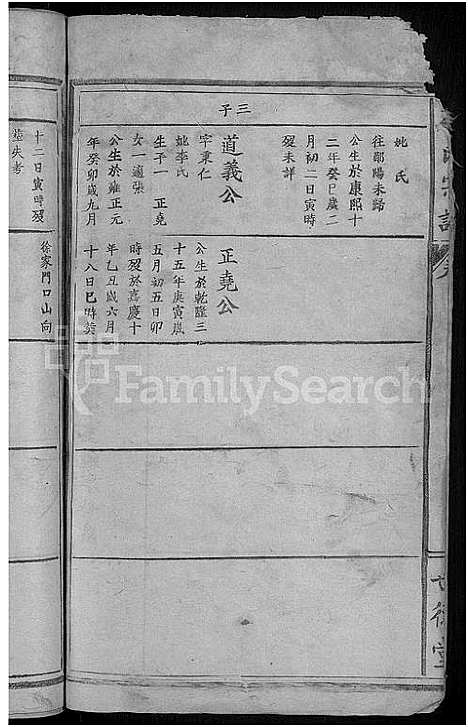 三子
妣氏
往鄱陽未歸
公生於康熙十
二年癸巳歲二
月初二日寅時
歿未詳
道義公
字秉仁
妣李氏
生子一 正堯
女一適張
公生於雍正元
年癸卯歲九月
正堯公
公生於乾隆三
十五年庚寅歲
五月初五日卯
時歿於嘉慶十
年乙丑歲六月
十八日巳時葬
十二日寅時歿
墓失考
徐家門口山向
FamilySearch